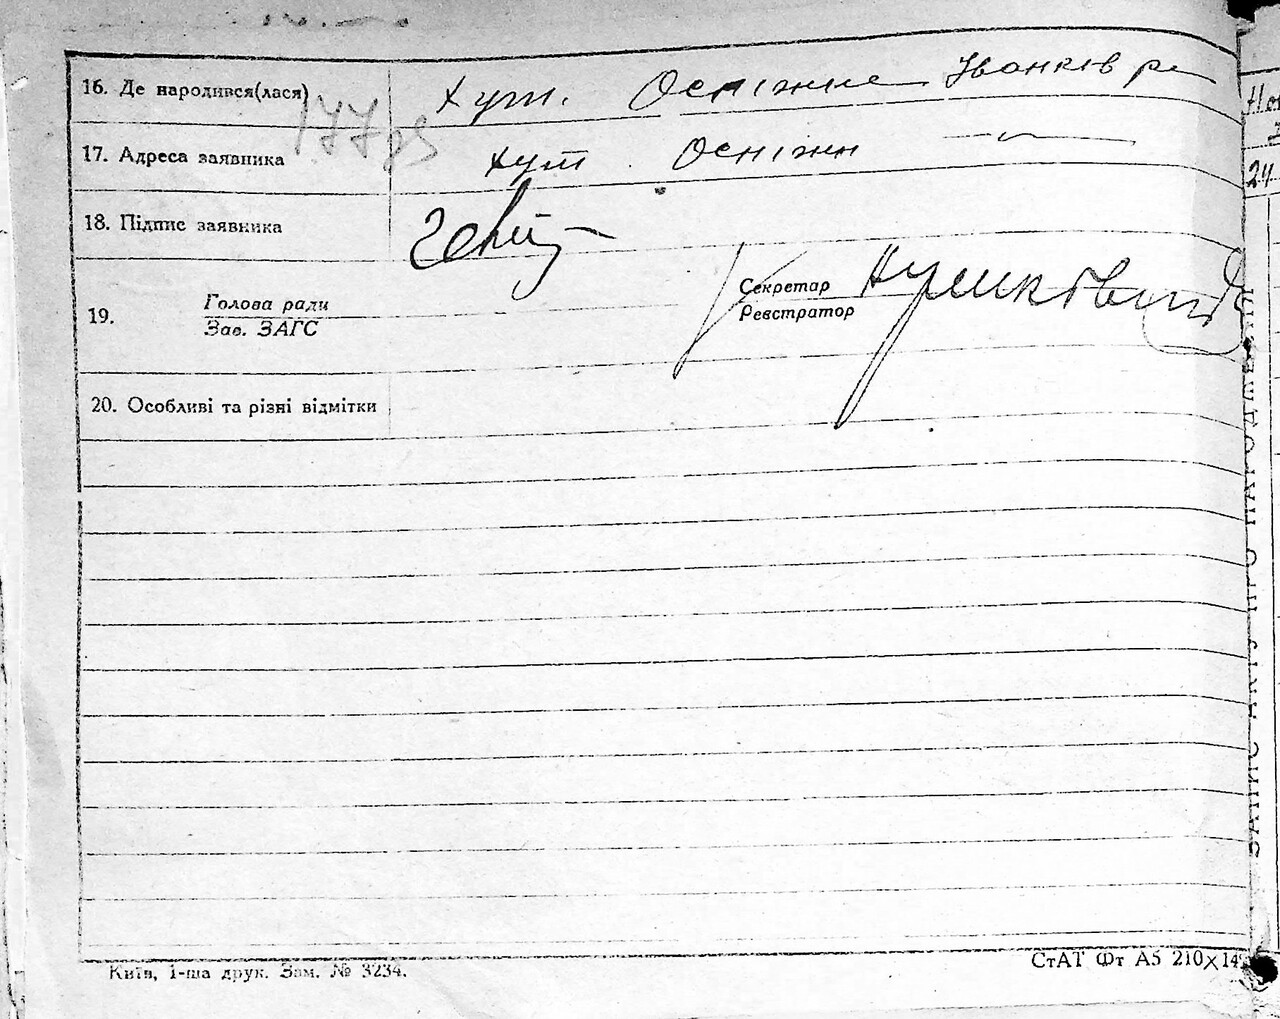 16. Де народився(лася) хут. Осніжне Іванків ра
177
17. Адреса заявника хут. Осніжн — " —
18. Підпис заявника
19. Голова ради
Зав. ЗАГС
Секретар
Реєстратор
20. Особливі та різні відмітки
Київ, 1-ша друк. Зам. № 3234.
СтАТ Фт А5 210×14
ЗАПИС АКТУ ПРО НАРОДЖЕННЯ